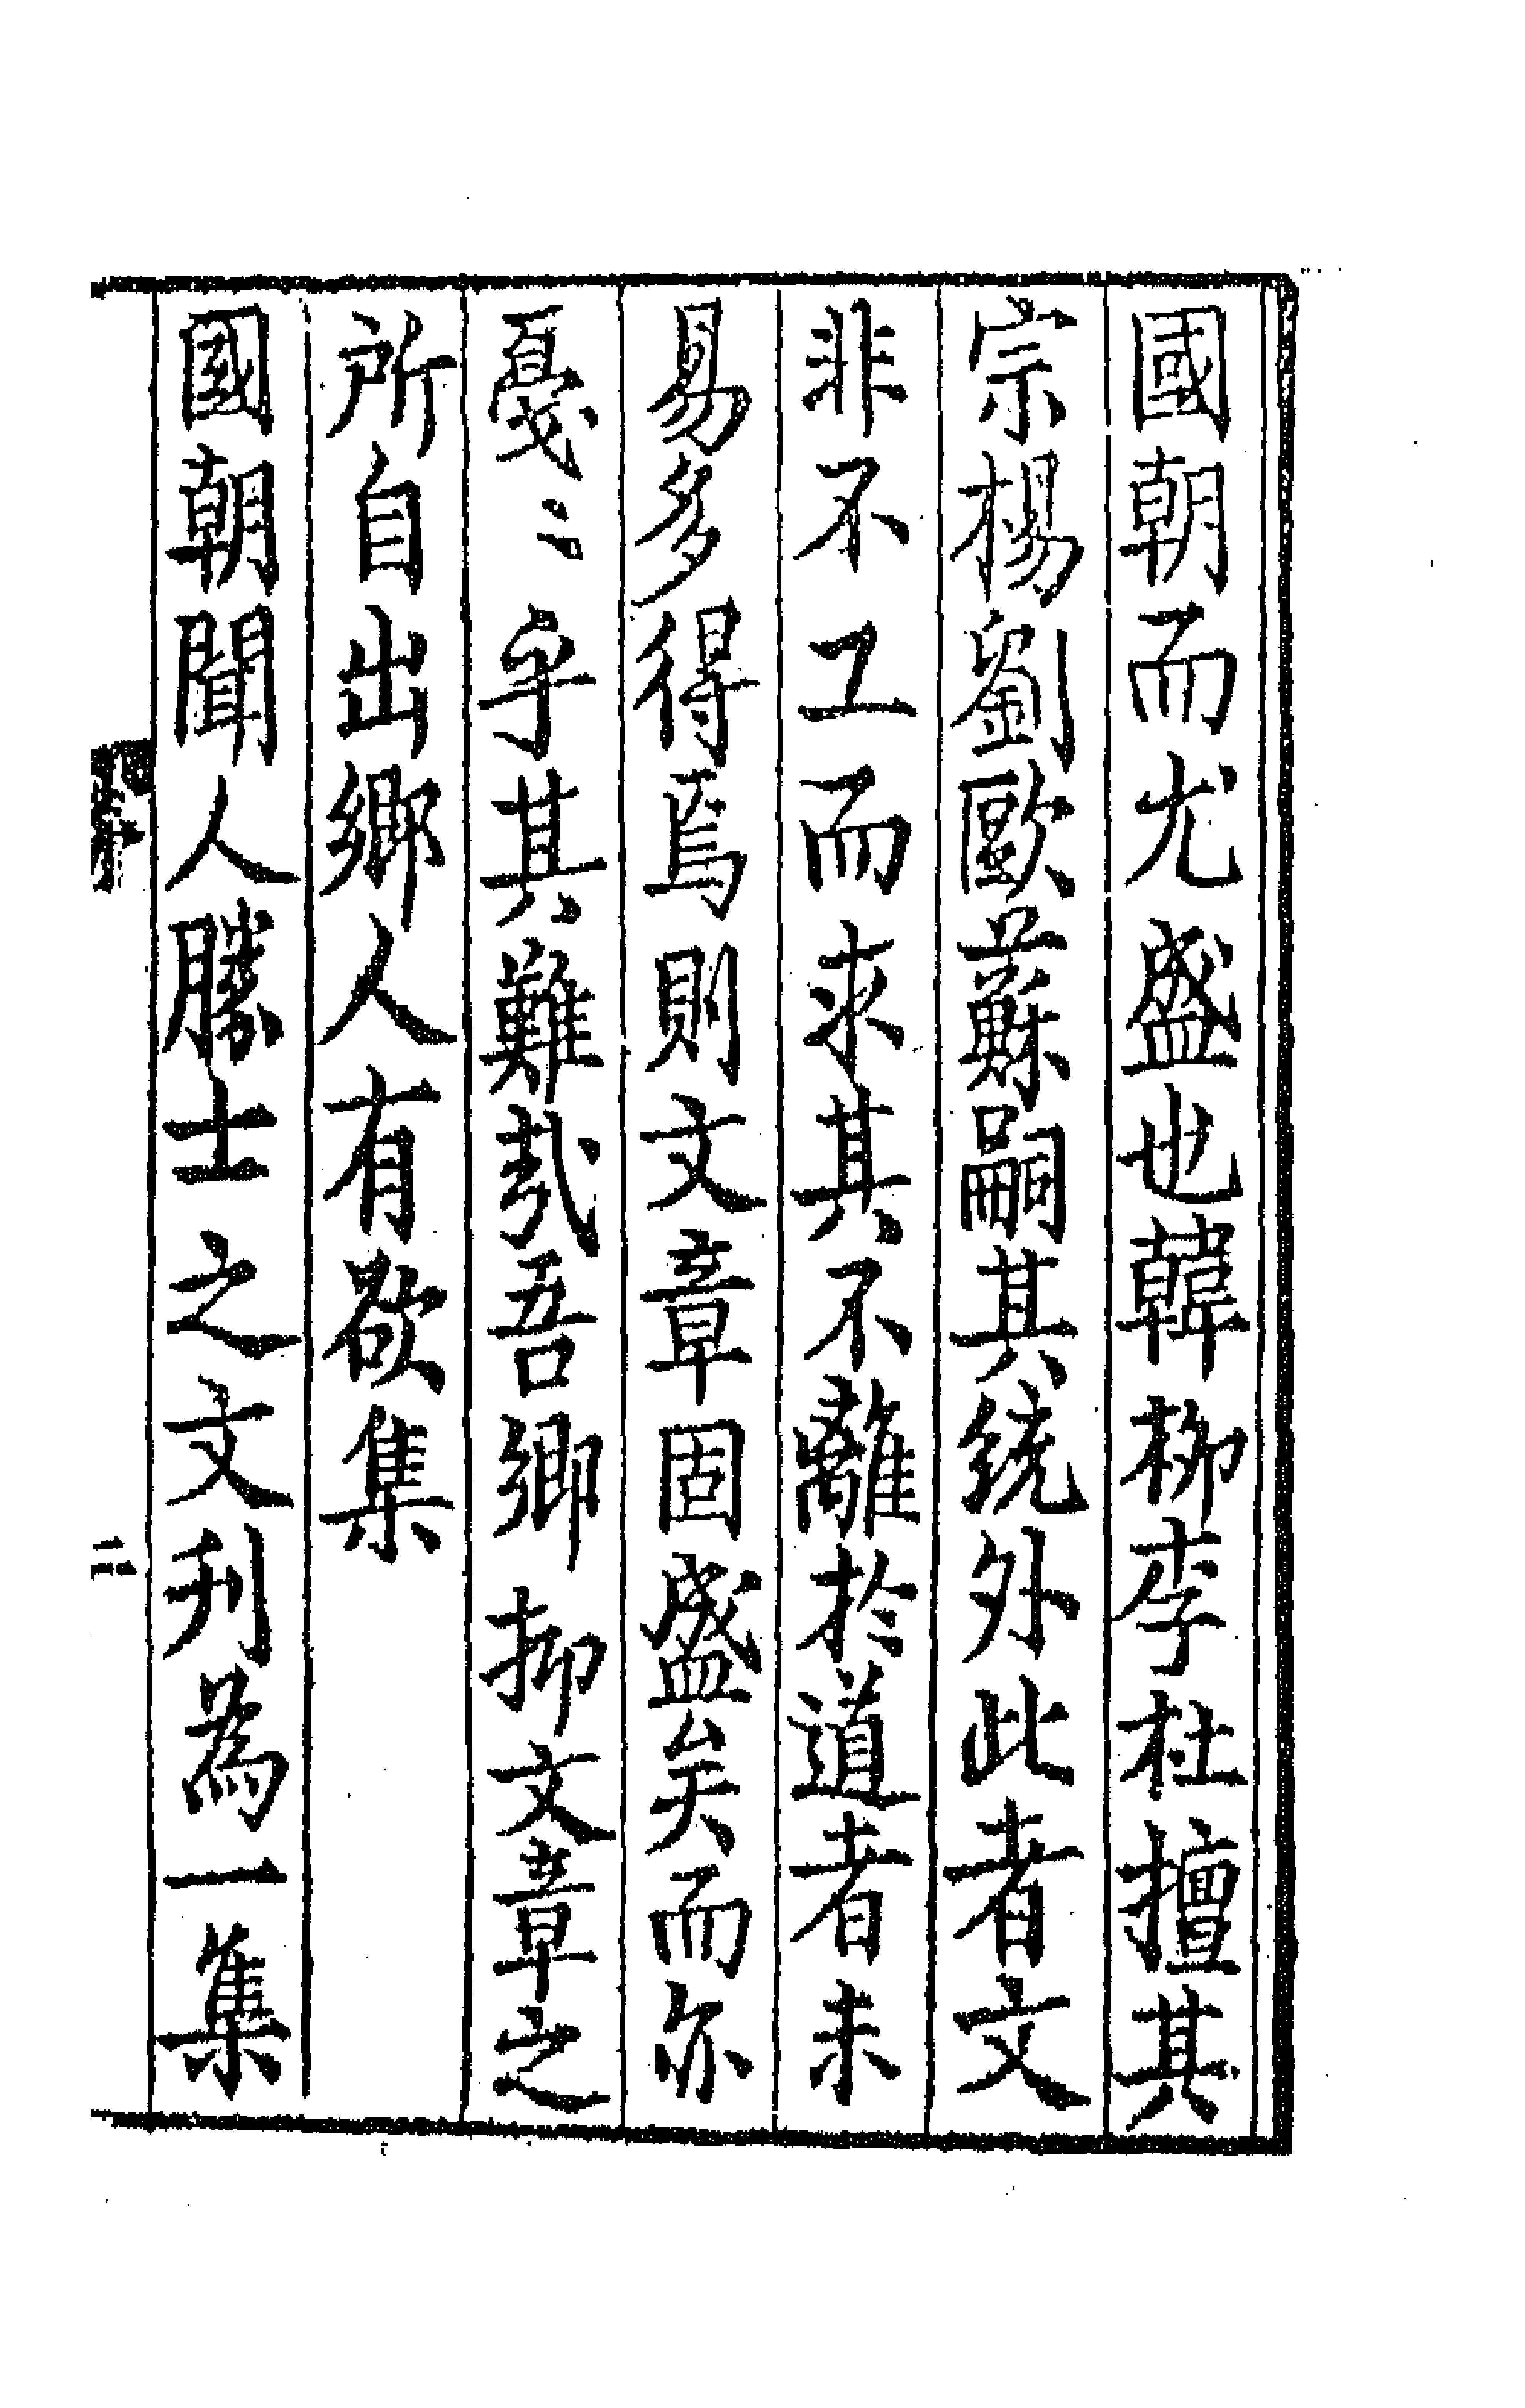 國朝而尤盛也韓柳李杜擅其
宗楊劉歐蘇嗣其統外此者文
非不工而求其不離於道者未
易多得焉則文章固盛矣而尓
戞〻乎其難㢤吾鄉抑文章之
所自出鄉人有欲集
國朝聞人勝士之文刋為一集
二